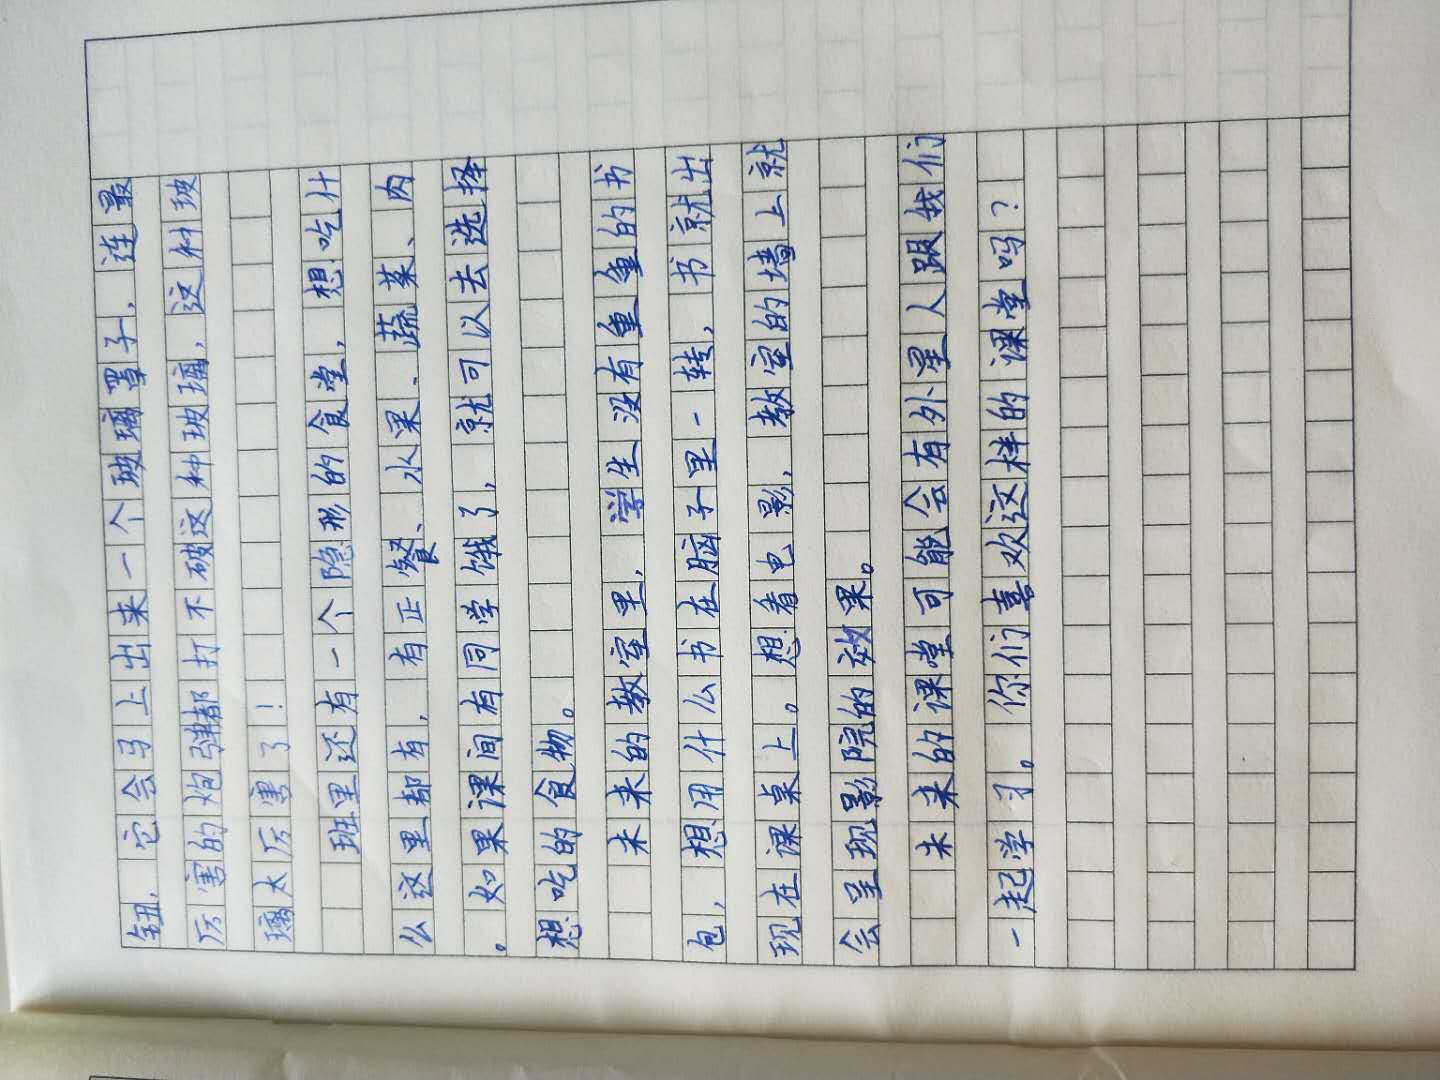 钮，它会马上出来一个玻璃罩子，连最
厉害的炮弹都打不破这种玻璃，这种玻
璃太厉害了！
班里还有一个隐形的食堂，想吃什
么这里都有，有正餐、水果、蔬菜、肉
。如果课间有同学饿了，就可以去选择
想吃的食物。
未来的教室里，学生没有重重的书
包，想用什么书在脑子里一转，书就出
现在课桌上。想看电影，教室的墙上就
会呈现影院的效果。
未来的课堂可能会有外星人跟我们
一起学习。你们喜欢这样的课堂吗？